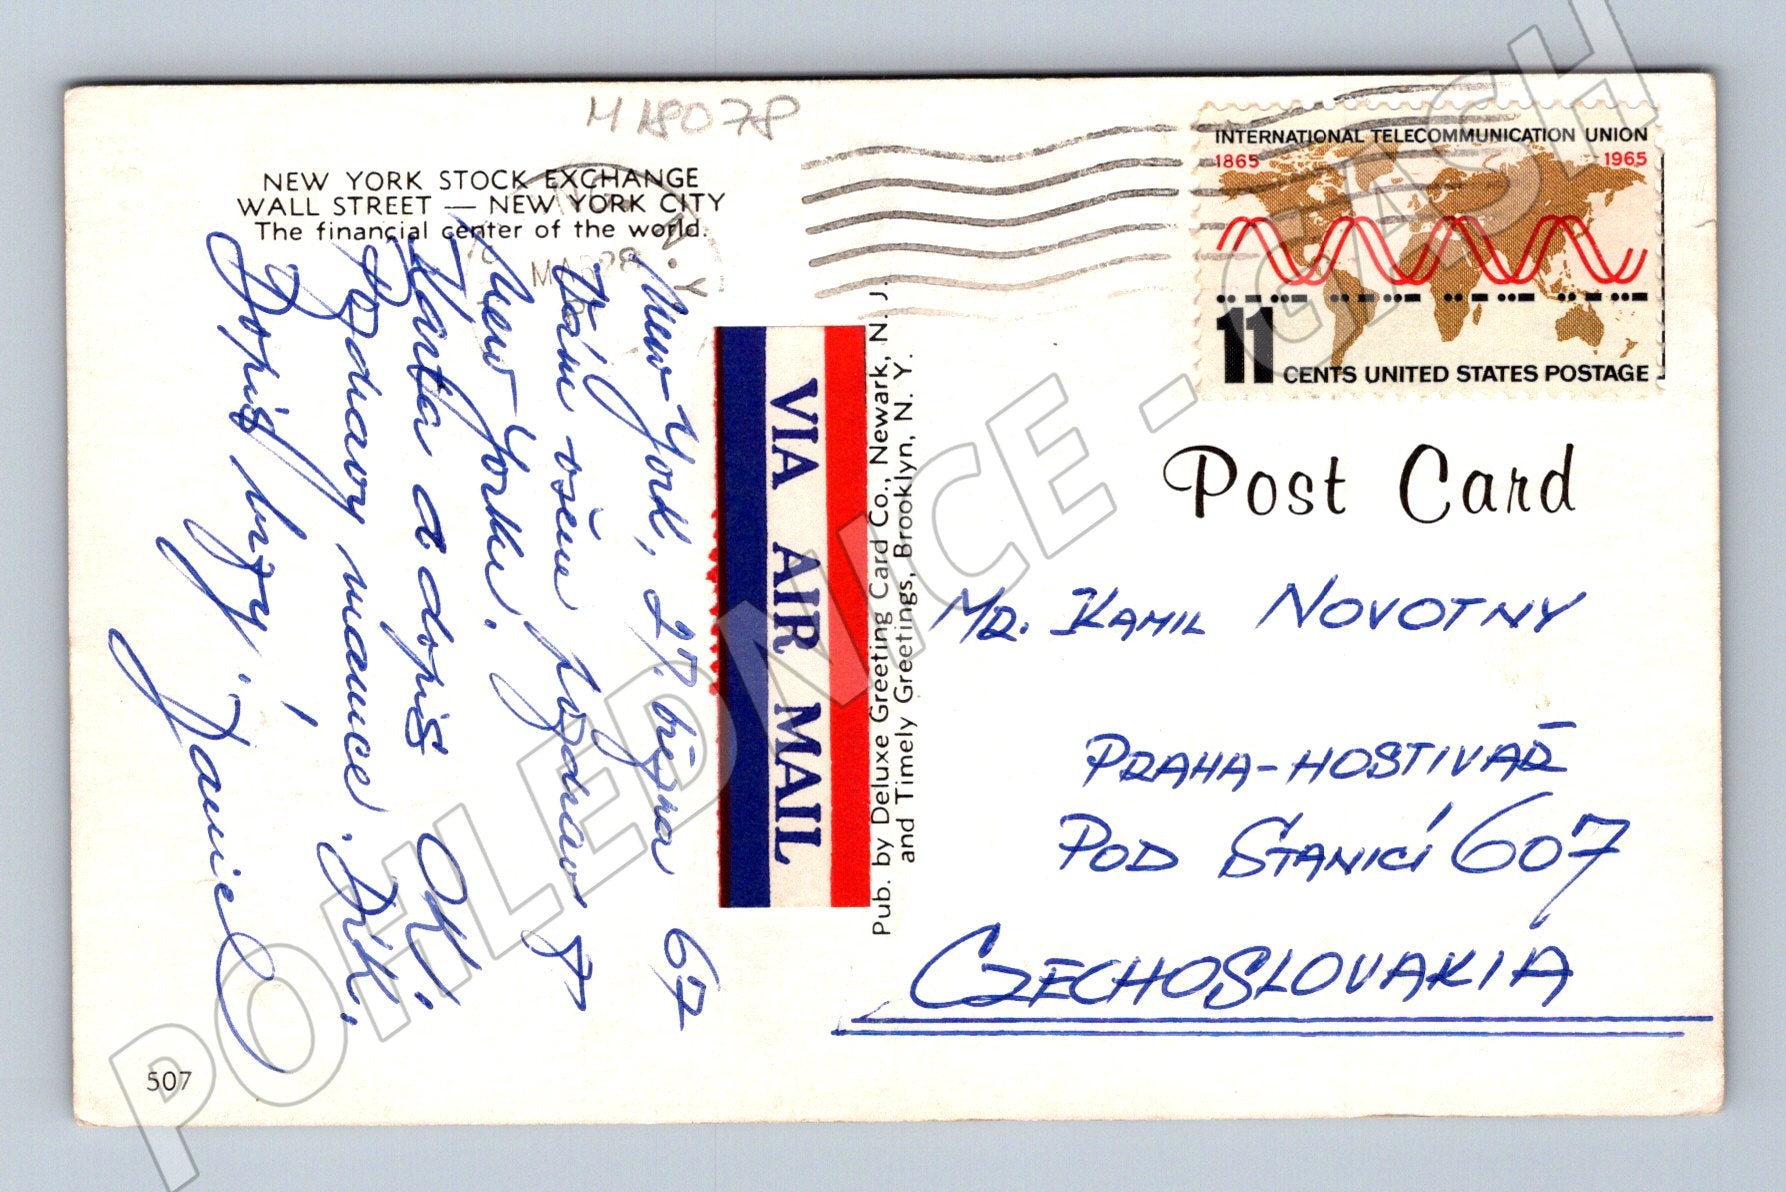 M18078
NEW YORK STOCK EXCHANGE
WALL STREET — NEW YORK CITY
The financial center of the world.
N.Y.
New York, 27. března 67
Vám všem pozdrav z
New Yorku.
Karta a dopis OK.
Pozdravy mamince. Dík.
Dopis brzy.
507
VIA AIR MAIL
Pub. by Deluxe Greeting Card Co., Newark, N. J.
and Timely Greetings, Brooklyn, N. Y.
INTERNATIONAL TELECOMMUNICATION UNION
1865 1965
11 CENTS UNITED STATES POSTAGE
Post Card
MR. KAMIL NOVOTNY
PRAHA-HOSTIVAŘ
POD STANICÍ 607
CZECHOSLOVAKIA
POHLEDNICE - CASH